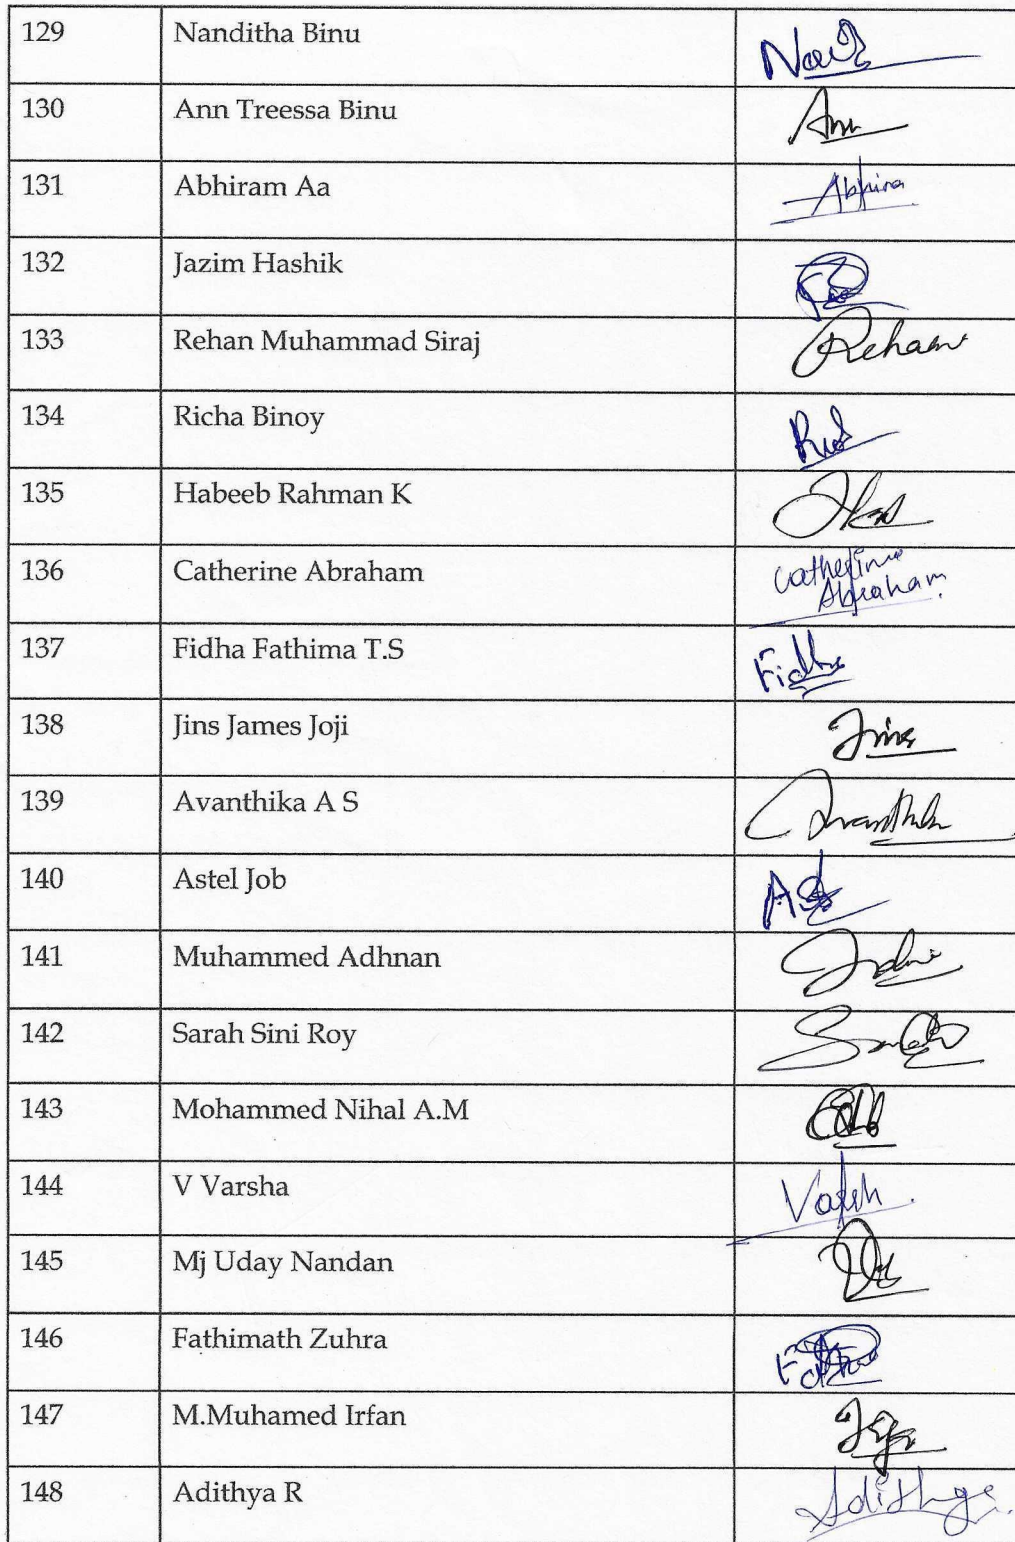 129 Nanditha Binu
130 Ann Treessa Binu Ann
131 Abhiram Aa
132 Jazim Hashik
133 Rehan Muhammad Siraj Rehan
134 Richa Binoy
135 Habeeb Rahman K
136 Catherine Abraham Catherine
Abraham
137 Fidha Fathima T.S Fidha
138 Jins James Joji Jins
139 Avanthika A S
140 Astel Job
141 Muhammed Adhnan
142 Sarah Sini Roy
143 Mohammed Nihal A.M
144 V Varsha
145 Mj Uday Nandan
146 Fathimath Zuhra
147 M.Muhamed Irfan
148 Adithya R Adithya